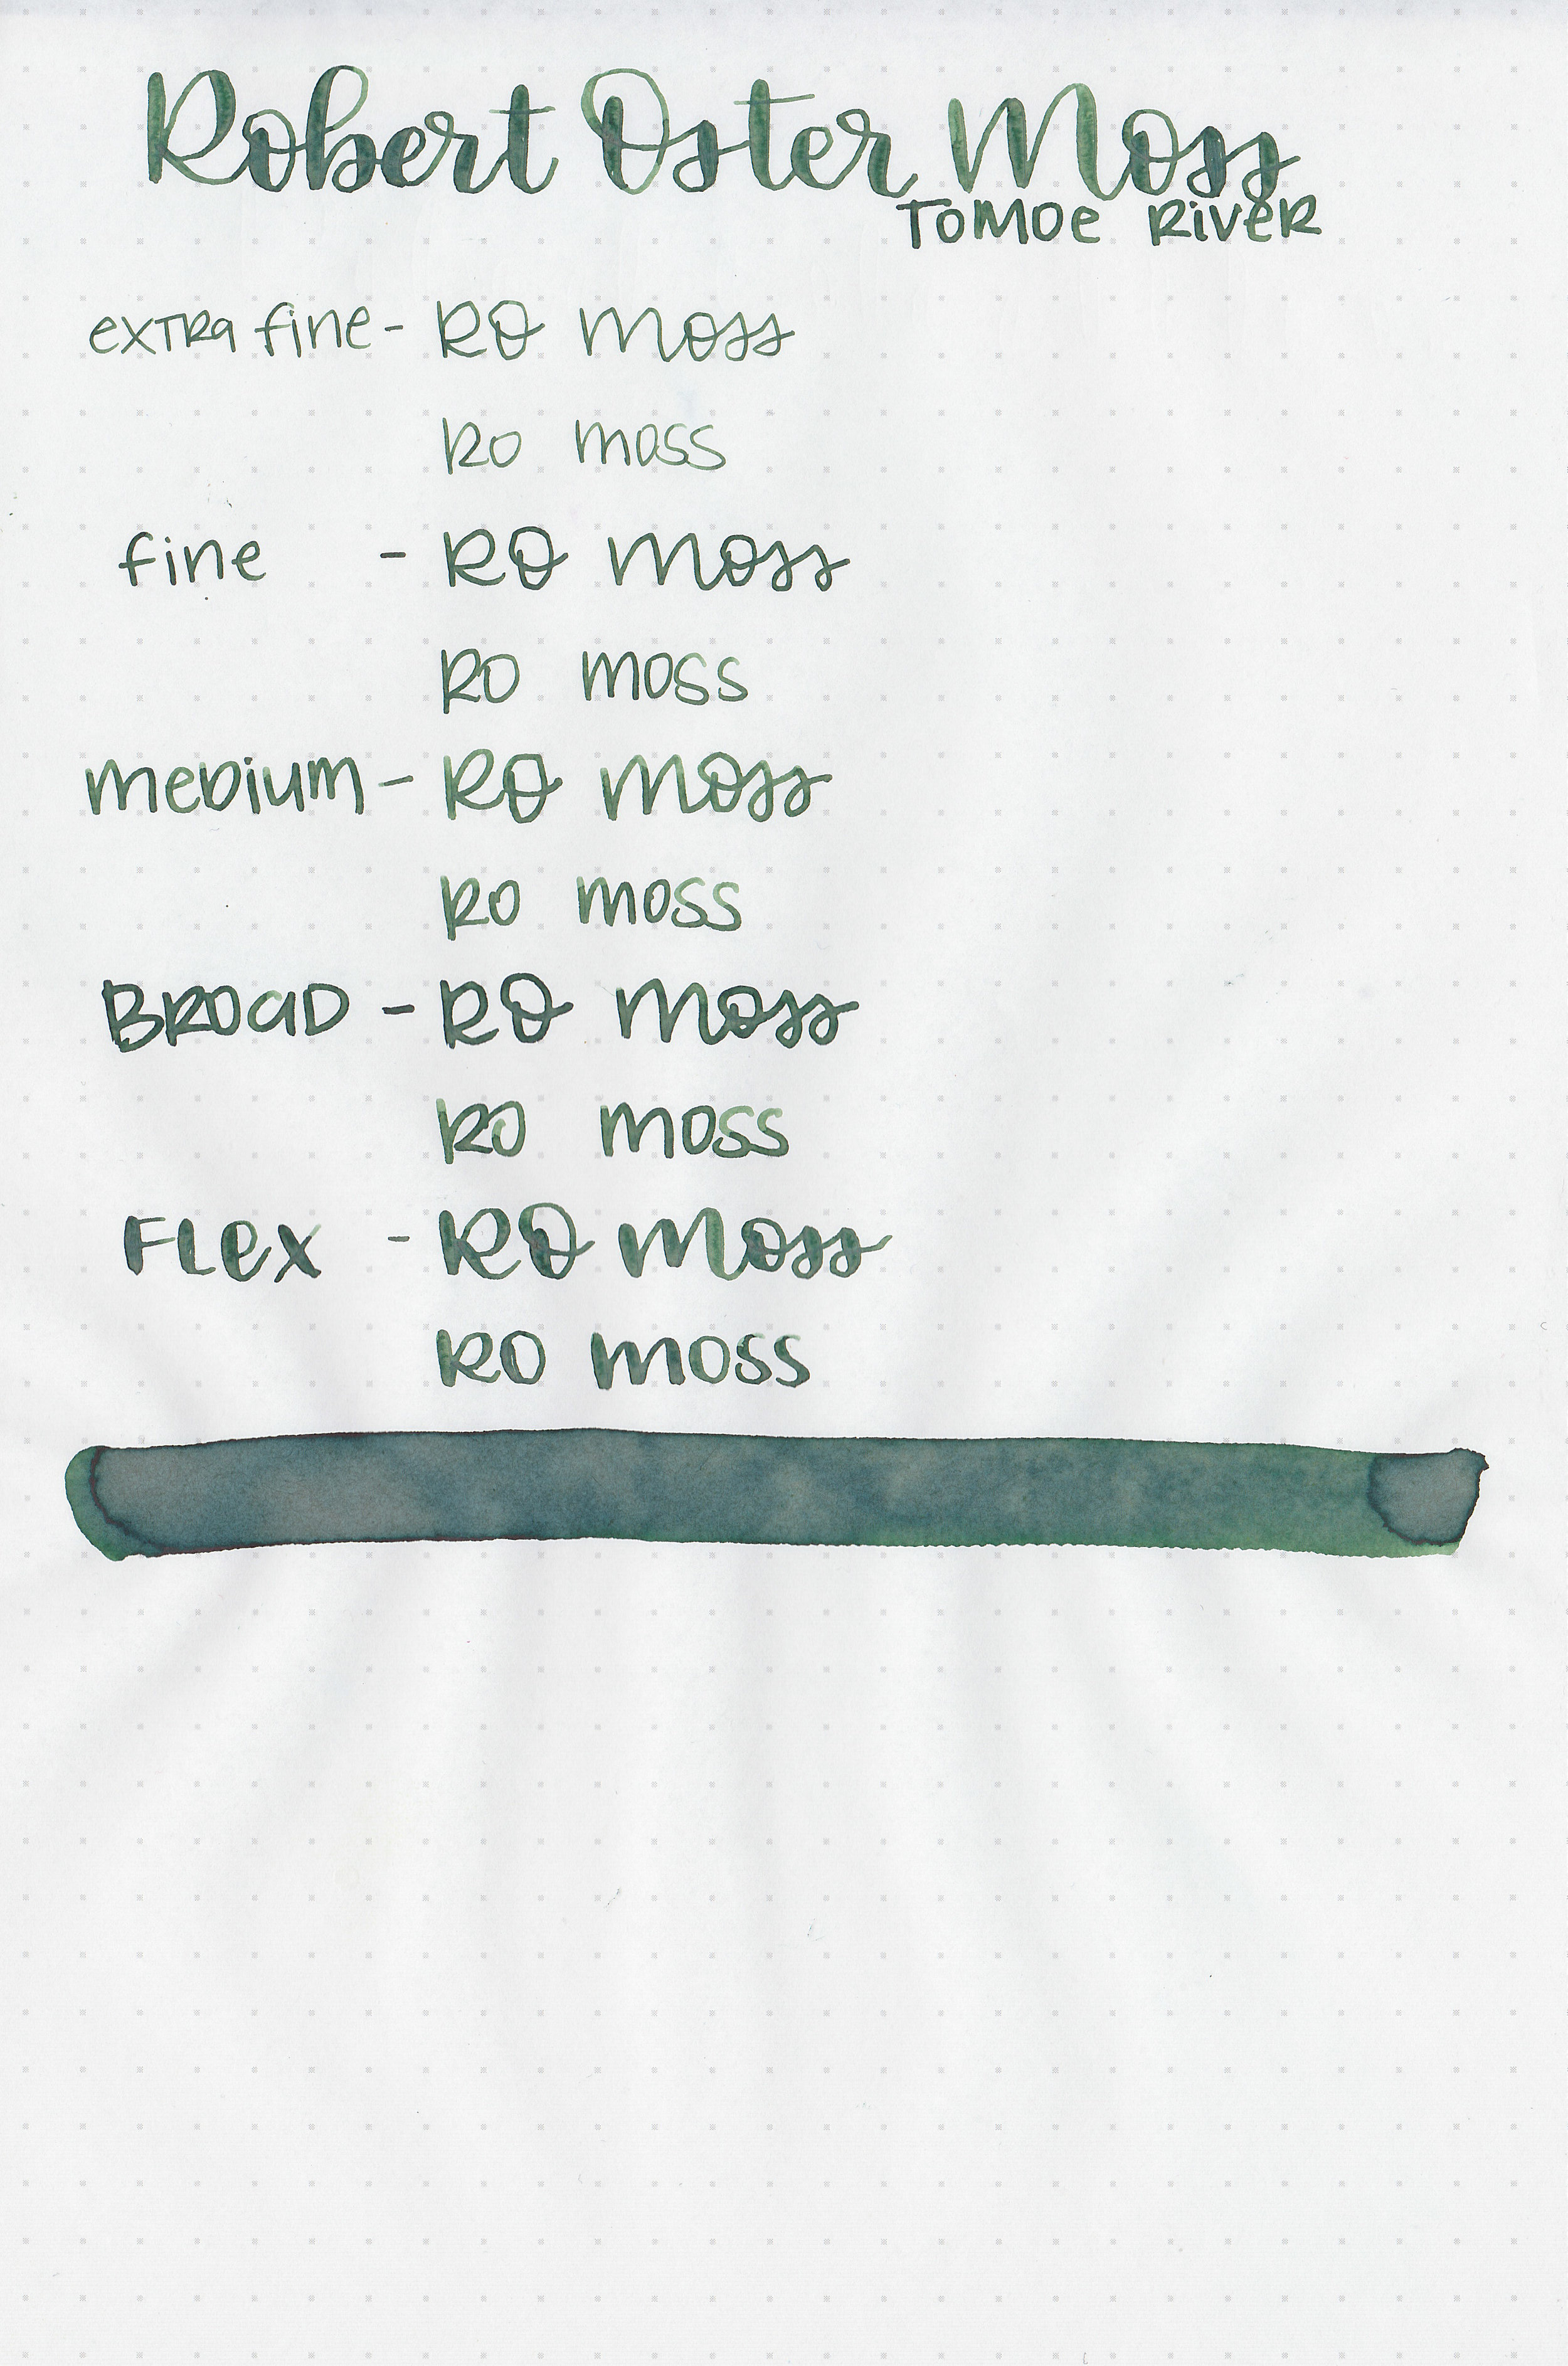 Robert Oster Moss
Tomoe River
extra fine - RO Moss
RO moss
fine - RO Moss
RO moss
medium - RO Moss
RO moss
Broad - RO Moss
RO moss
Flex - RO Moss
RO moss